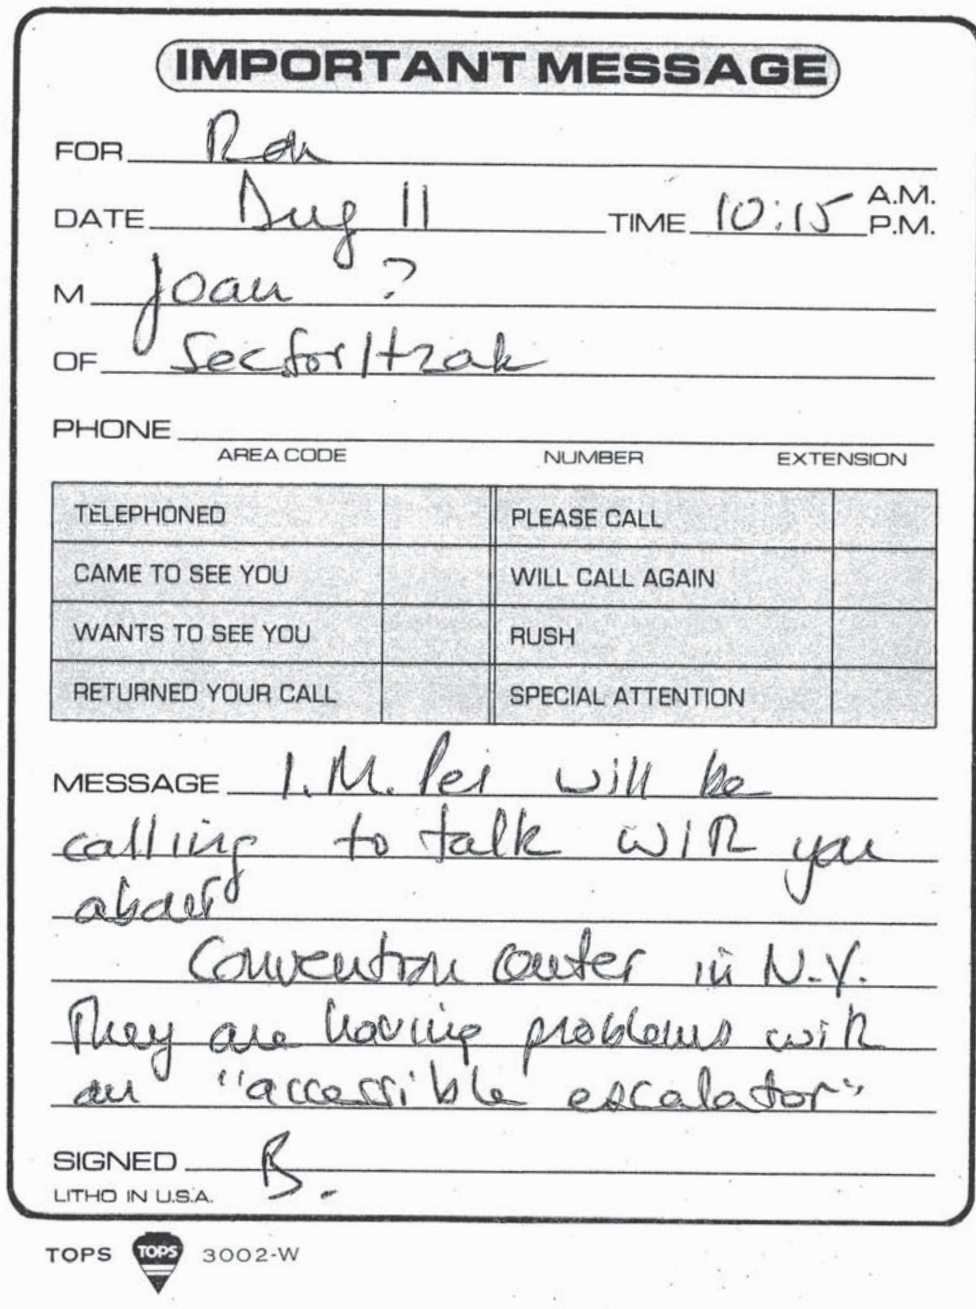 IMPORTANT MESSAGE
FOR Ron
DATE Aug 11 TIME 10:15 A.M. P.M.
M Joan ?
OF Sector/trak
PHONE
AREA CODE NUMBER EXTENSION
TELEPHONED PLEASE CALL
CAME TO SEE YOU WILL CALL AGAIN
WANTS TO SEE YOU RUSH
RETURNED YOUR CALL SPECIAL ATTENTION
MESSAGE I.M. Pei will be
calling to talk with you
about
Convention Center in N.Y.
They are having problems with
an "accessible escalator"
SIGNED B.
LITHO IN U.S.A.
TOPS TOPS 3002-W